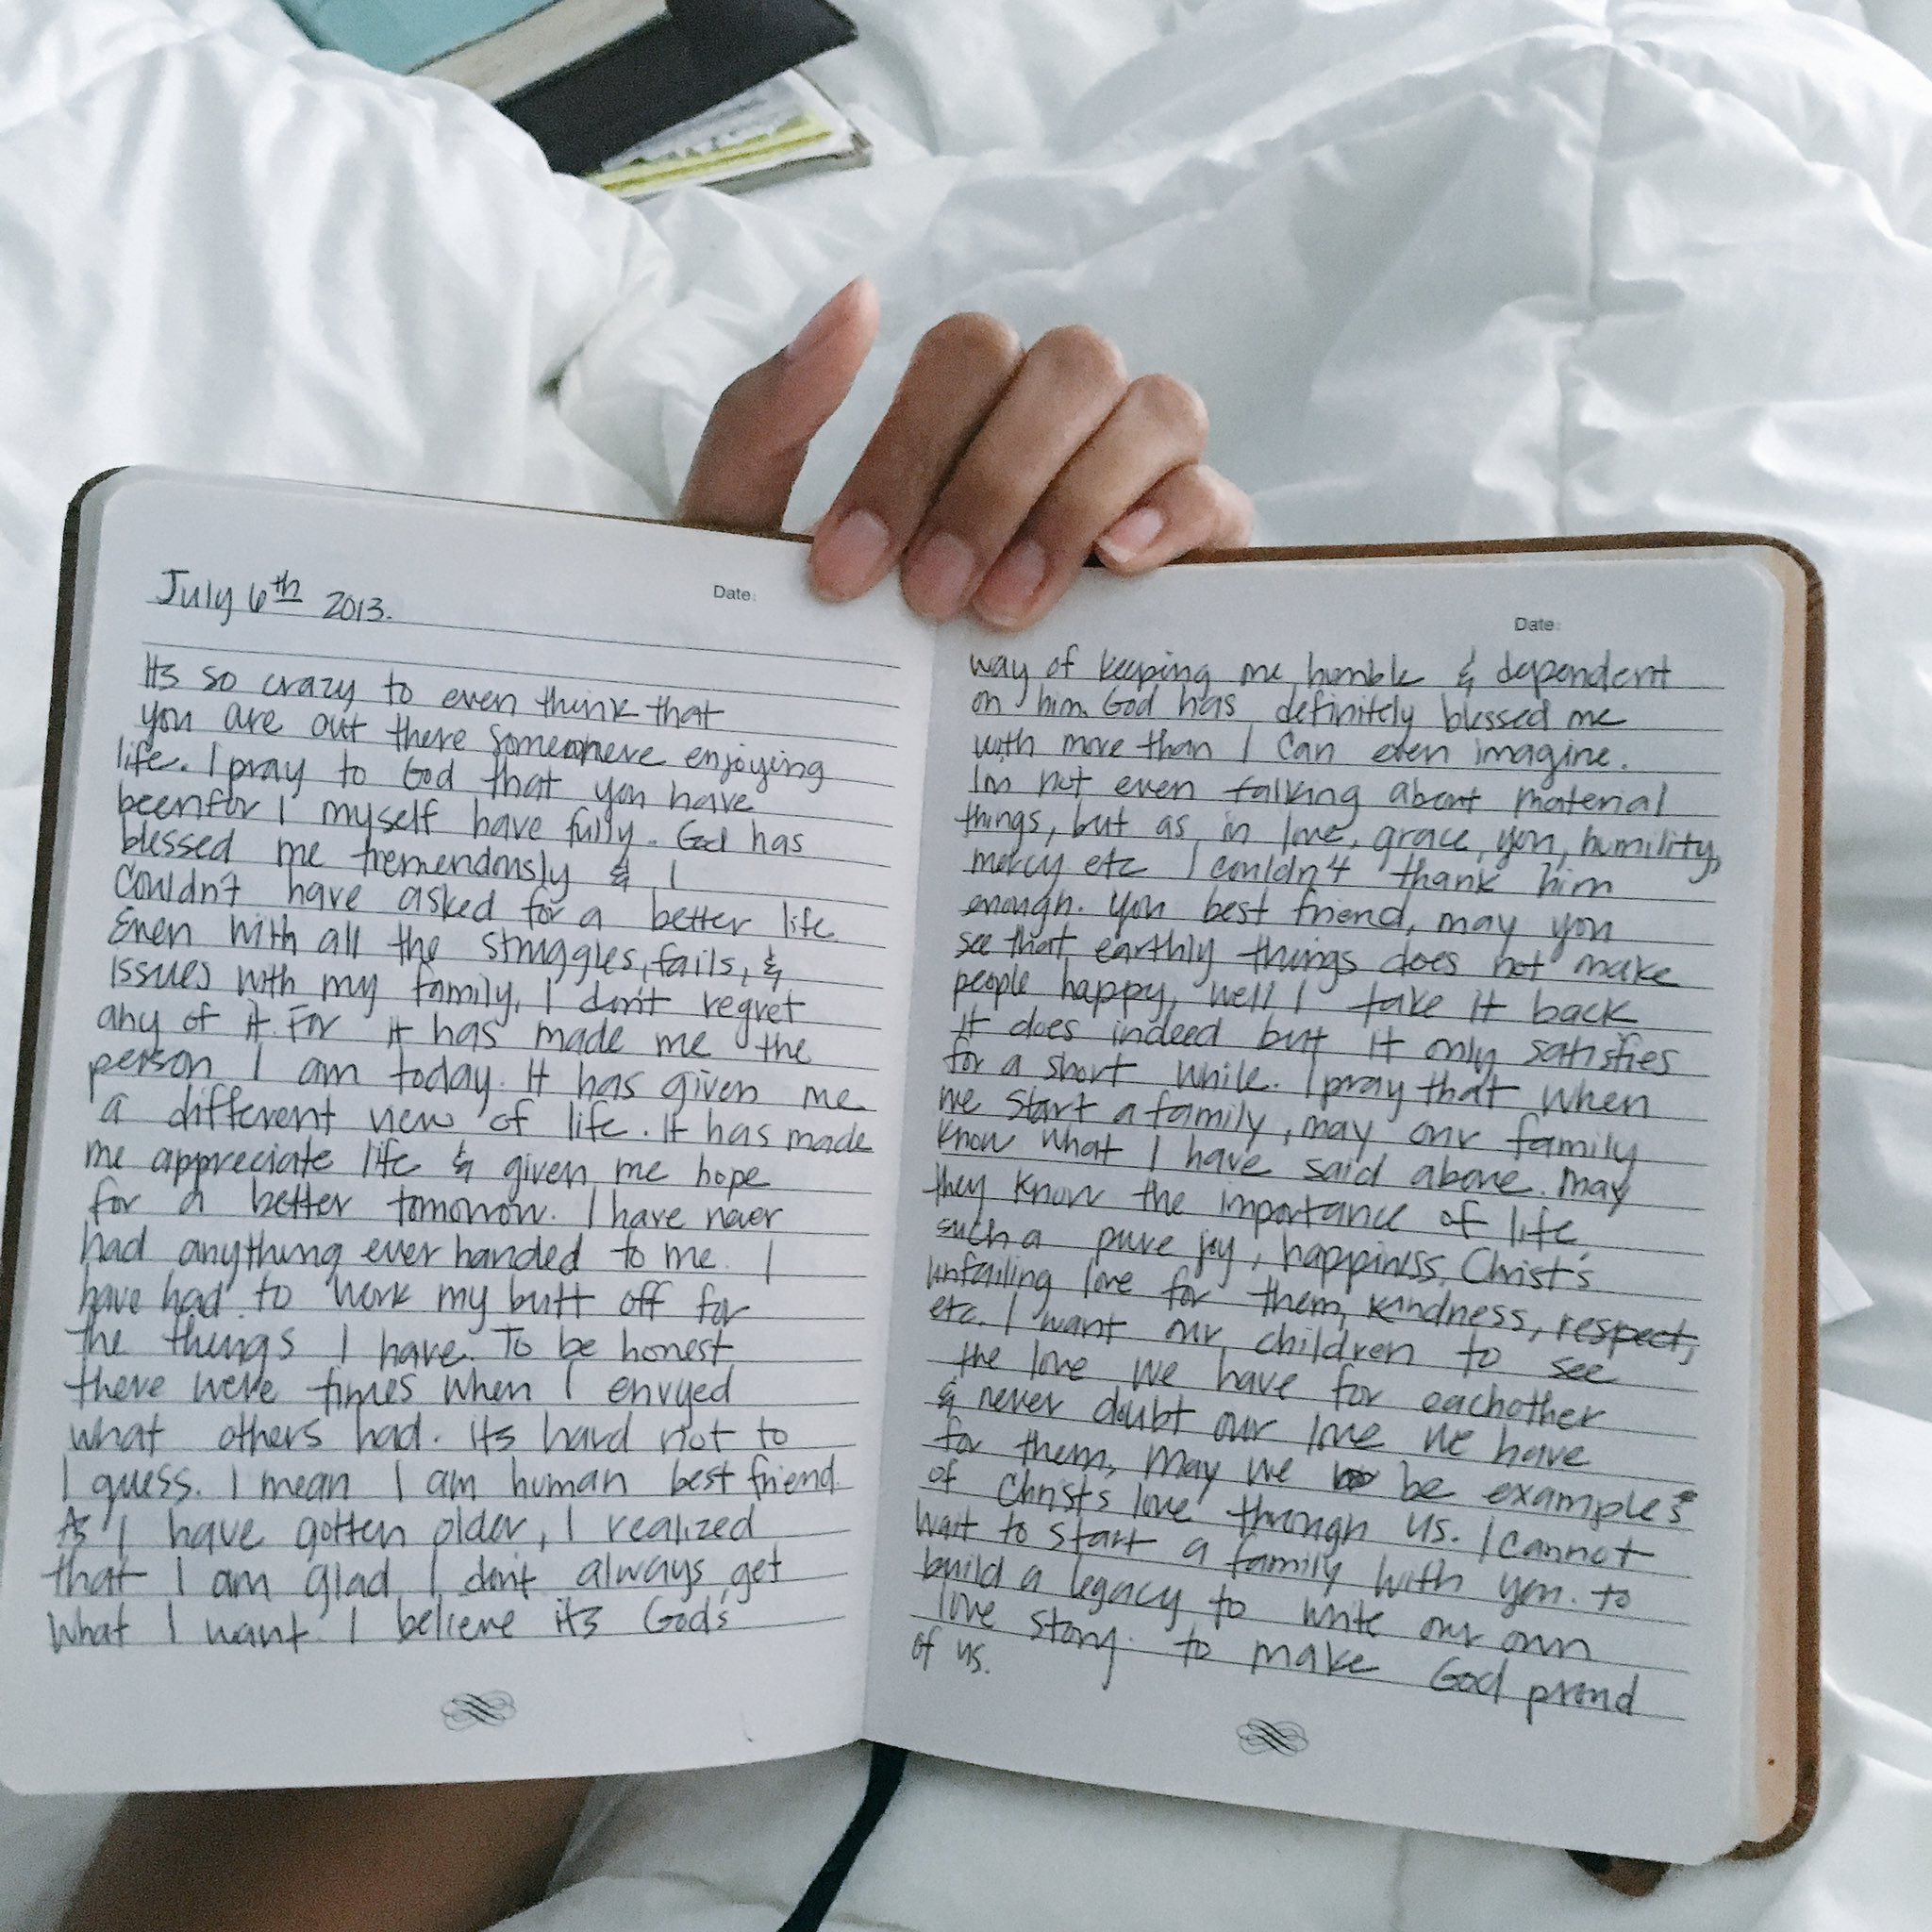 July 6th 2013.
Date:
Its so crazy to even think that
you are out there somewhere enjoying
life. I pray to God that you have
beenfor I myself have fully. God has
blessed me tremendously & I
couldn't have asked for a better life.
Even with all the struggles, fails, &
issues with my family, I don't regret
any of it. For it has made me the
person I am today. It has given me
a different view of life. It has made
me appreciate life & given me hope
for a better tomorrow. I have never
had anything ever handed to me. I
have had to work my butt off for
the things I have. To be honest
there were times when I envyed
what others had. its hard not to
I guess. I mean I am human best friend.
As I have gotten older, I realized
that I am glad I don't always get
what I want. I believe its God's
Date:
way of keeping me humble & dependent
on him. God has definitely blessed me
with more than I can even imagine.
Im not even talking about material
things, but as in love, grace, you, humility,
mercy etc I couldn't thank him
enough. You best friend, may you
see that earthly things does not make
people happy, well I take it back
it does indeed but it only satisfies
for a short while. I pray that when
we start a family, may our family
know what I have said above. May
they know the importance of life,
such a pure joy, happiness, Christ's
unfailing love for them, kindness, respect,
etc. I want our children to see
the love we have for eachother
& never doubt our love we have
for them, may we be examples
of Christs love through us. I cannot
wait to start a family with you. to
build a legacy to write our own
love story. to make God proud
of us.